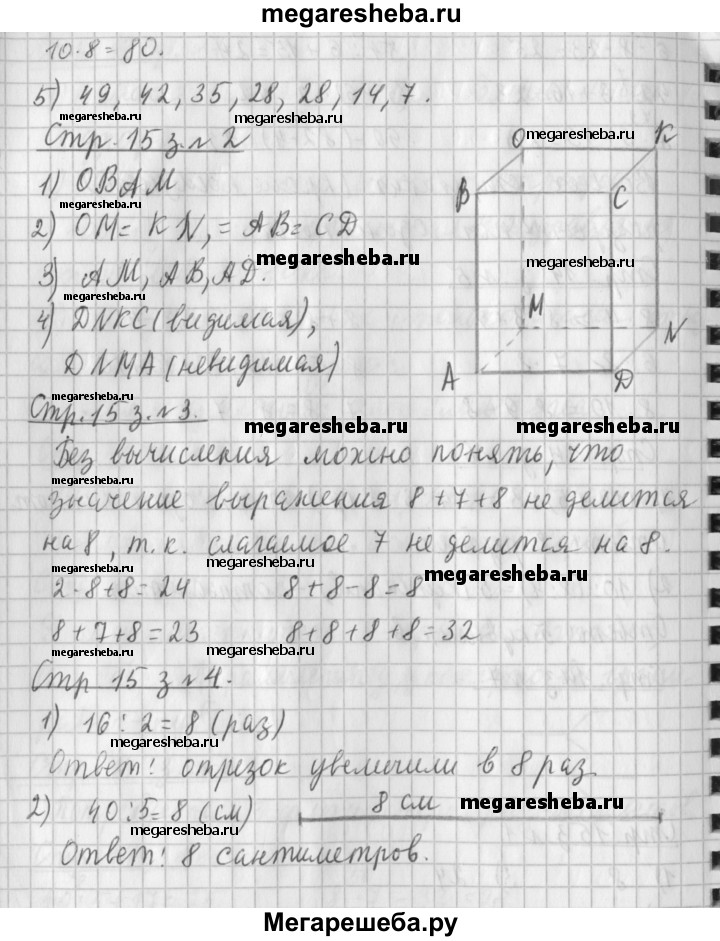 megaresheba.ru
10·8=80.
5) 49, 42, 35, 28, 28, 14, 7.
megaresheba.ru megaresheba.ru
Стр. 15 з. №2 megaresheba.ru
O K
1) ОВАМ
B C
megaresheba.ru
2) OM = KN, = AB = CD
megaresheba.ru megaresheba.ru
3) AM, AB, AD.
megaresheba.ru
M N
4) DNKC (видимая),
DNMA (невидимая)
A D
megaresheba.ru
Стр. 15 з. №3.
megaresheba.ru megaresheba.ru
Без вычисления можно понять, что
значение выражения 8+7+8 не делится
на 8, т.к. слагаемое 7 не делится на 8.
megaresheba.ru megaresheba.ru megaresheba.ru
2·8+8=24 8+8-8=8
8+7+8=23 8+8+8+8=32
megaresheba.ru megaresheba.ru
Стр 15 з №4.
1) 16:2=8 (раз)
megaresheba.ru
Ответ: отрезок увеличили в 8 раз.
2) 40:5=8 (см) 8 см megaresheba.ru
megaresheba.ru
Ответ: 8 сантиметров.
Мегарешеба.ру